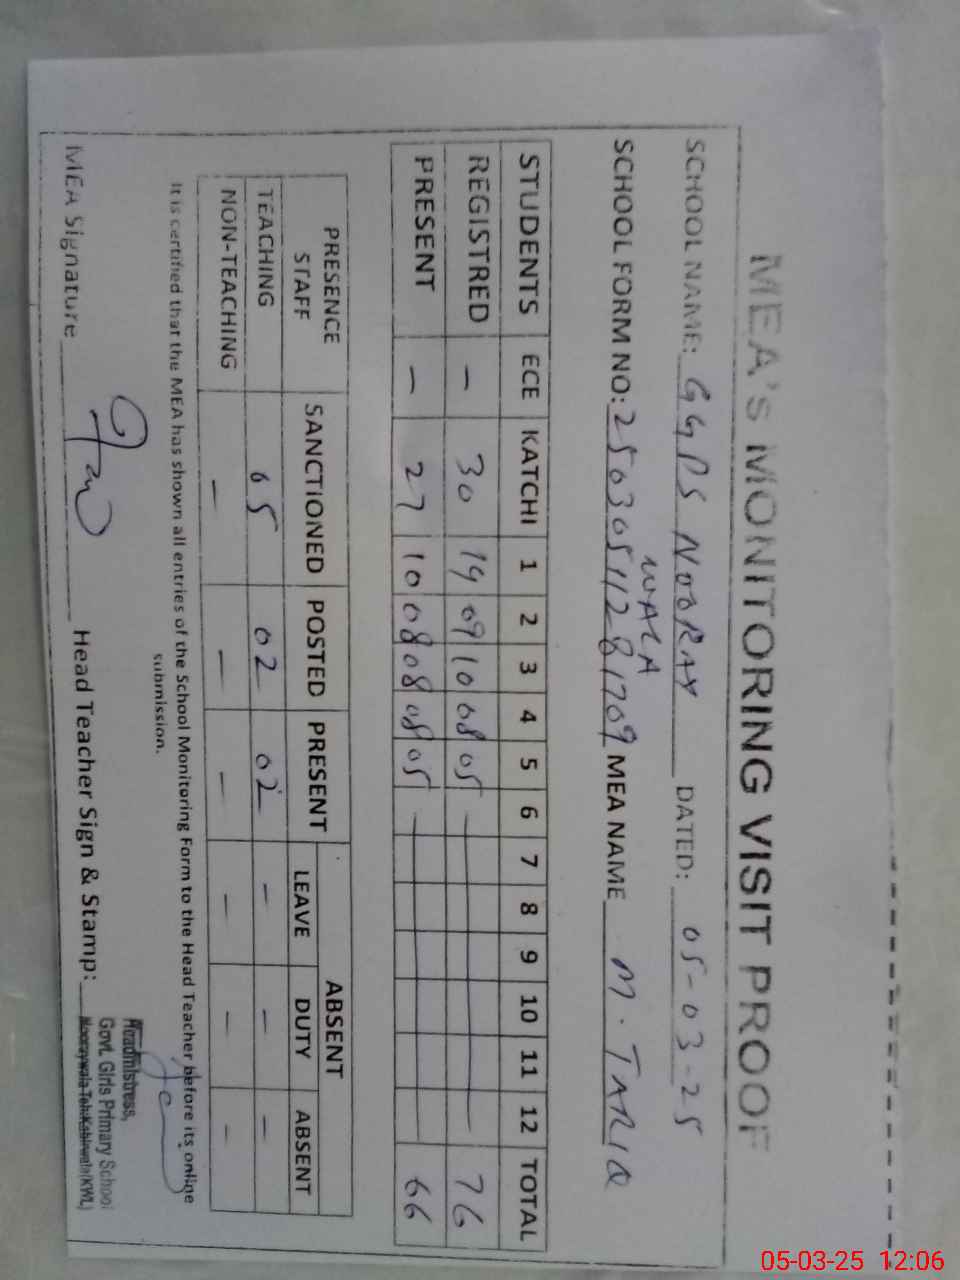 MEA's MONITORING VISIT PROOF
SCHOOL NAME: GGPS NOORAY WALA DATED: 05-03-25
SCHOOL FORM NO: 25030511281709 MEA NAME M. TARIQ
STUDENTS ECE KATCHI 1 2 3 4 5 6 7 8 9 10 11 12 TOTAL
REGISTRED — 30 14 09 10 08 05 — 76
PRESENT — 27 10 08 08 08 05 — 66
PRESENCE STAFF SANCTIONED POSTED PRESENT ABSENT
LEAVE DUTY ABSENT
TEACHING 05 02 02 — — —
NON-TEACHING — — — — — —
It is certified that the MEA has shown all entries of the School Monitoring Form to the Head Teacher before its online
submission.
MEA Signature Head Teacher Sign & Stamp:
Headmistress,
Govt. Girls Primary School
Nooraywala Teh: Kabirwala (KWL)
05-03-25 12:06